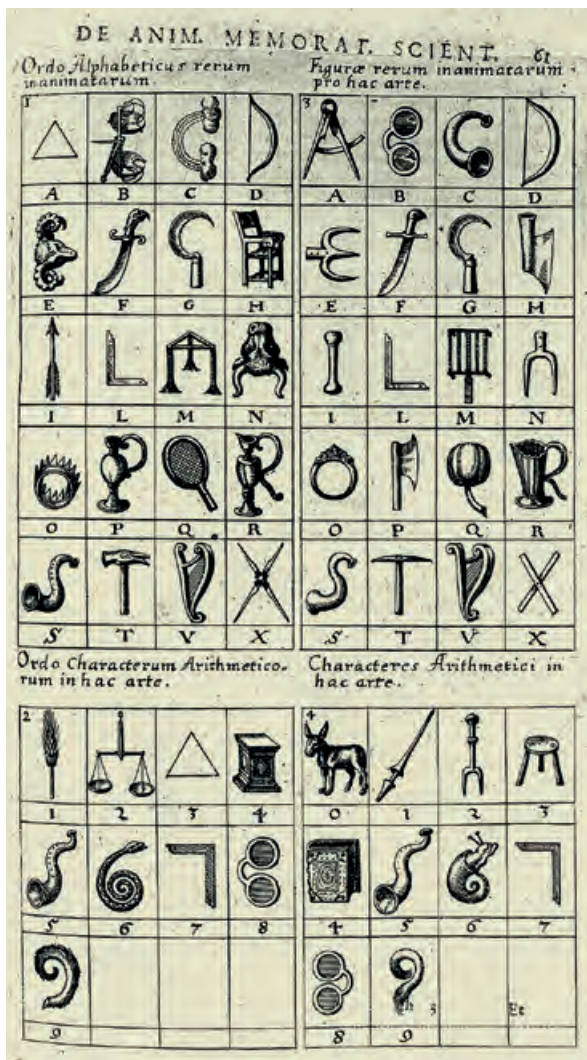 DE ANIM. MEMORAT. SCIENT. 61
Ordo Alphabeticus rerum
inanimatarum.
1
A B C D
E F G H
I L M N
O P Q R
S T V X
Figuræ rerum inanimatarum
pro hac arte.
3
A B C D
E F G H
I L M N
O P Q R
S T V X
Ordo Characterum Arithmetico-
rum in hac arte.
2
1 2 3 4
5 6 7 8
9
Characteres Arithmetici in
hac arte.
4
0 1 2 3
4 5 6 7
8 9
3 Et